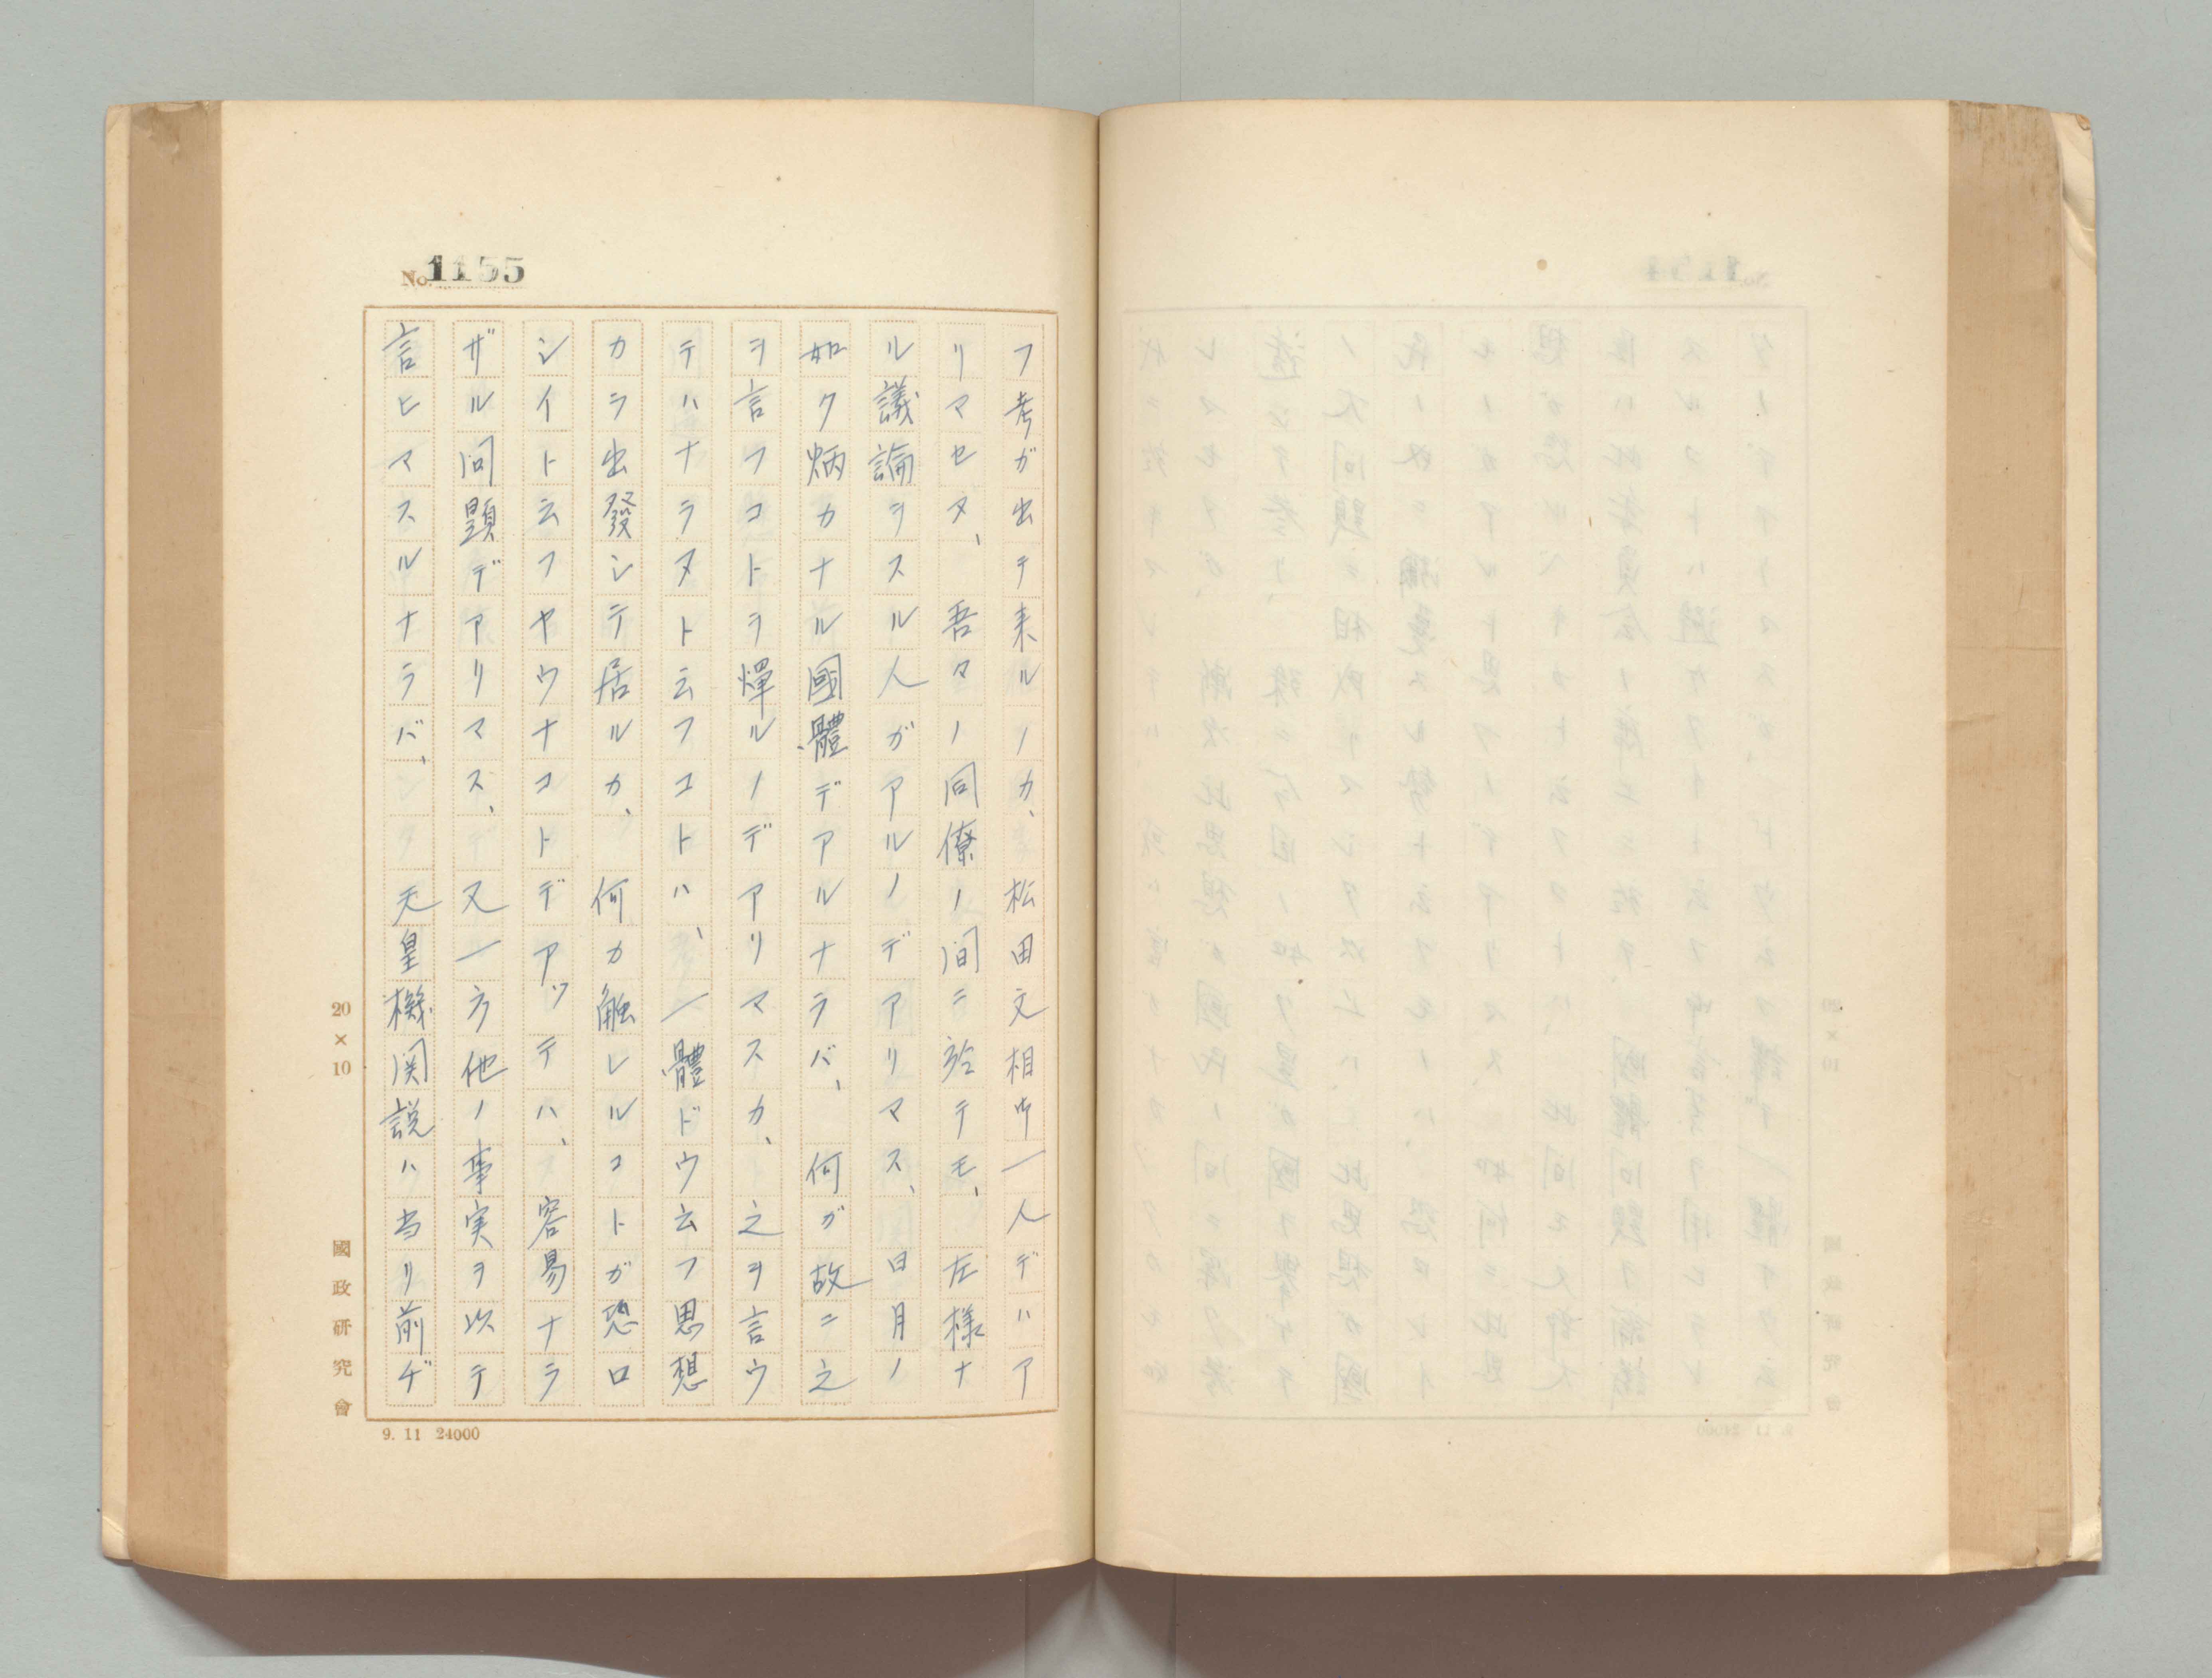 No. 1155
フ考ガ出テ来ルノカ、松田文相唯一人デハア
リマセヌ、吾々ノ同僚ノ間ニ於テモ、左様ナ
ル議論ヲスル人ガアルノデアリマス、日月ノ
如ク炳カナル國體デアルナラバ、何ガ故ニ之
ヲ言フコトヲ憚ルノデアリマスカ、之ヲ言ウ
テハナラヌト云フコトハ、一體ドウ云フ思想
カラ出發シテ居ルカ、何カ触レルコトガ恐ロ
シイト云フヤウナコトデアッテハ、容易ナラ
ザル問題デアリマス、又一方他ノ事実ヲ以テ
言ヒマスルナラバ、天皇機関説ハ当リ前ヂ
20×10
國政研究會
9. 11 24000